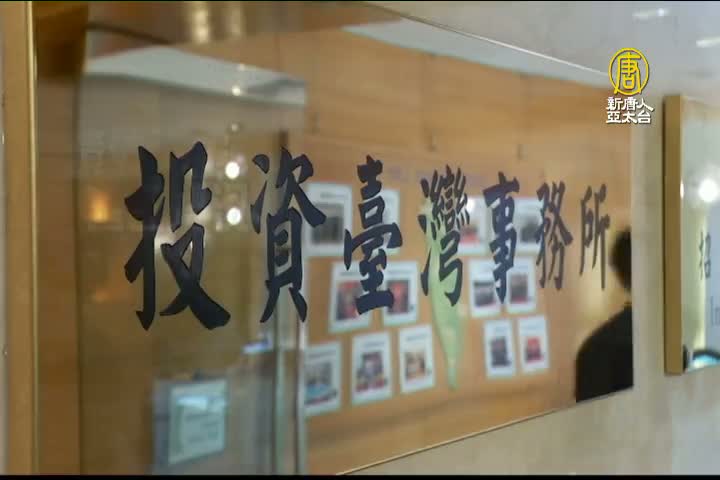 唐
新唐人
亞太台
投資臺灣事務所
招
In